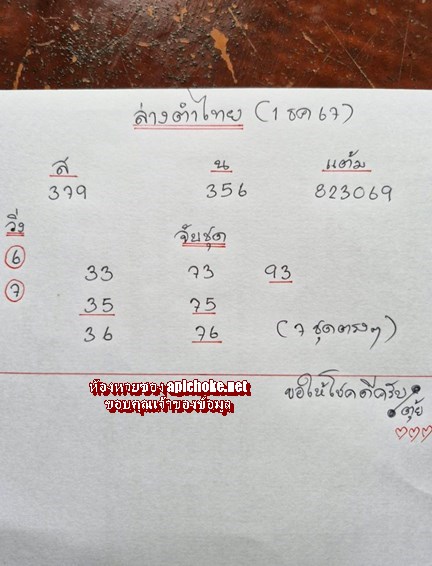 ล่างตำไทย (1 ธค 67)
ส น แต้ม
379 356 823069
วิ่ง
จับชุด
6
33 73 93
7
35 75
36 76 (7 ชุดตรงๆ)
ห้องหวยซอง apichoke.net
ขอบคุณเจ้าของข้อมูล
ขอให้โชคดีครับ
ตุ้ย